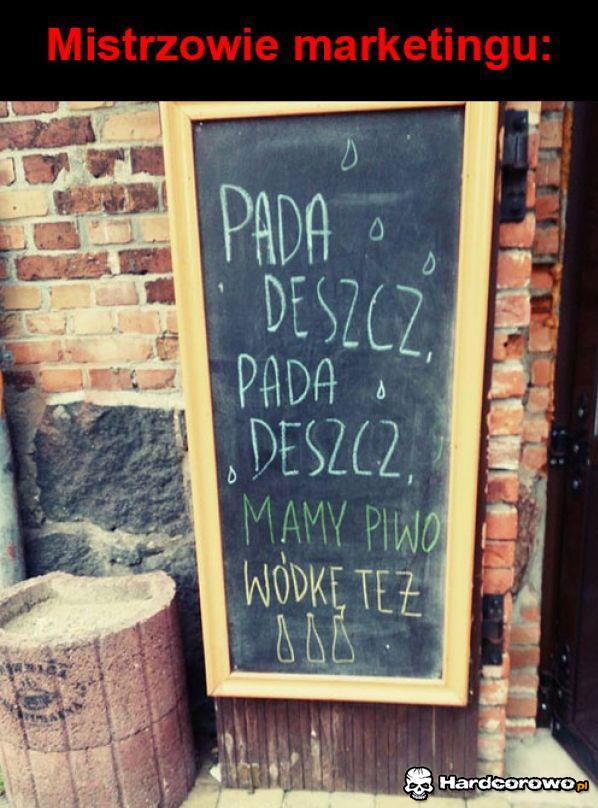 Mistrzowie marketingu:
PADA
DESZCZ,
PADA
DESZCZ,
MAMY PIWO
WÓDKĘ TEŻ
Hardcorowo.pl